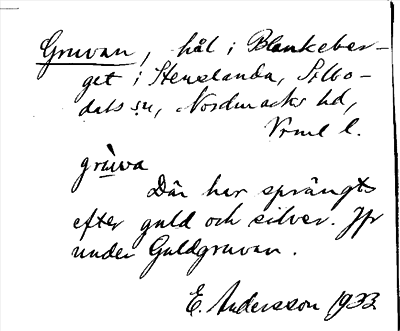 Gruvan, hål i Blankeber-
get i Stenslanda, Silbo-
dals sn, Nordmarks hd,
Vrml l.
grùva
Där har sprängts
efter guld och silver. Jfr
under Guldgruvan.
E. Andersson 1933